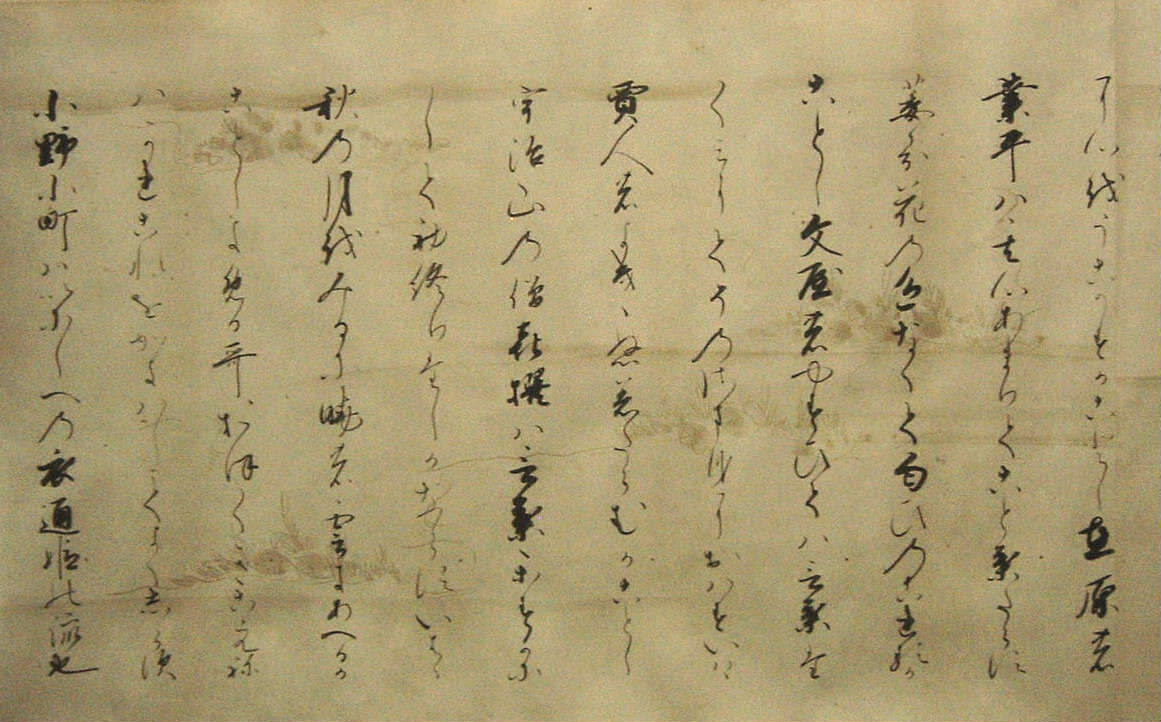 に心をうこかすかことし在原の
業平は其心あまりてこと葉たらす
萎る花の色なくて匂ひのこれるか
ことし文屋のやすひては言葉た
くみにてそのさま身におはすいはゝ
賈人のよき衣きたらむかことし
宇治山の僧喜撰は言葉かすかに
して初終りたしかならすいはゝ
秋の月をみるに暁の雲にあへるか
ことしよめる哥おほくきこえね
はかれこれをかよはしてよくしらす
小野小町はいにしへの衣通姫の流也